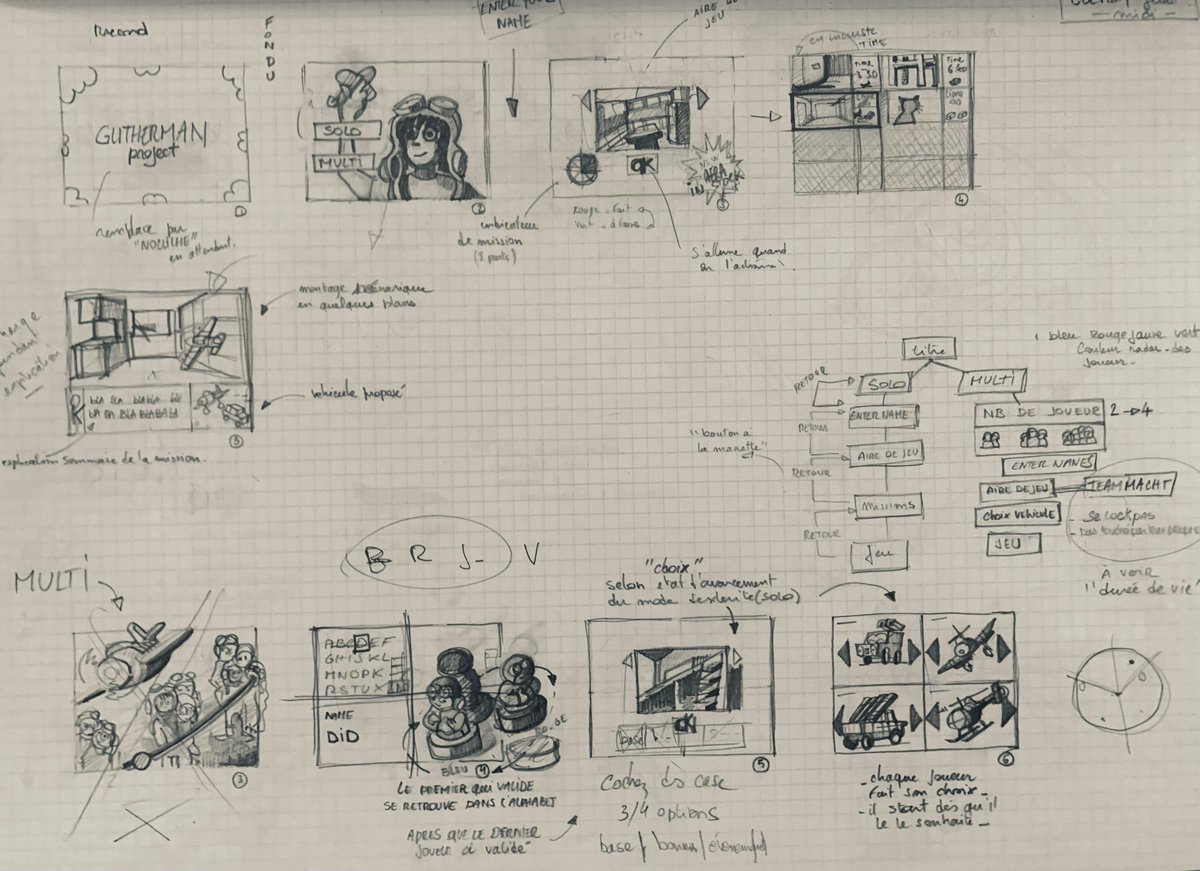 Raccord
FONDU
ENTER YOUR
NAME
AIRE DE
JEU
en incruste
TIME
GUTHERMAN
project
1
remplace par
"NOLULHE"
en attendant.
SOLO
MULTI
2
OK
NEW
3
indicateur
de mission
(8 parts)
Rouge - fait
vert - à faire
s'allume quand
on l'actionne!
Time
4
montage scénarique
en quelques plans
pendant
explication
BLA BLA BLABLA BLA
BLA BLA BLABLABLA
véhicule proposé
5
explication sommaire de la mission.
bleu Rouge jaune vert
Couleur radar des
joueurs.
titre
RETOUR
SOLO
MULTI
ENTER NAME
RETOUR
AIRE DE JEU
RETOUR
missions
RETOUR
Jeu
"bouton à
la manette"
NB DE JOUEUR
2 → 4
ENTER NAMES
AIRE DE JEU
TEAM MACHT
CHOIX VEHICULE
- se lock pas
JEU
À VOIR
"durée de vie"
B R J V
MULTI
3
ABCDEF
GHIJKL
MNOPK
RSTUX
NAME
DiD
BLEU
4
LE PREMIER QUI VALIDE
SE RETROUVE DANS L'ALPHABET
APRES QUE LE DERNIER
JOUEUR a validé
"choix"
selon état d'avancement
du mode (solo)
base
OK
5
Cochez des case
3/4 options
base / bonus /
6
- chaque joueur
fait son choix -
- il start dès qu'il
le souhaite -